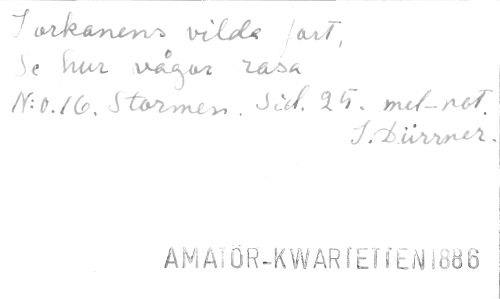 I orkanens vilda fart,
Se hur vågor rasa
N:o.16. Stormen. Sid. 25. mel-not.
J. Dürrner.
AMATÖR-KWARTETTEN 1886